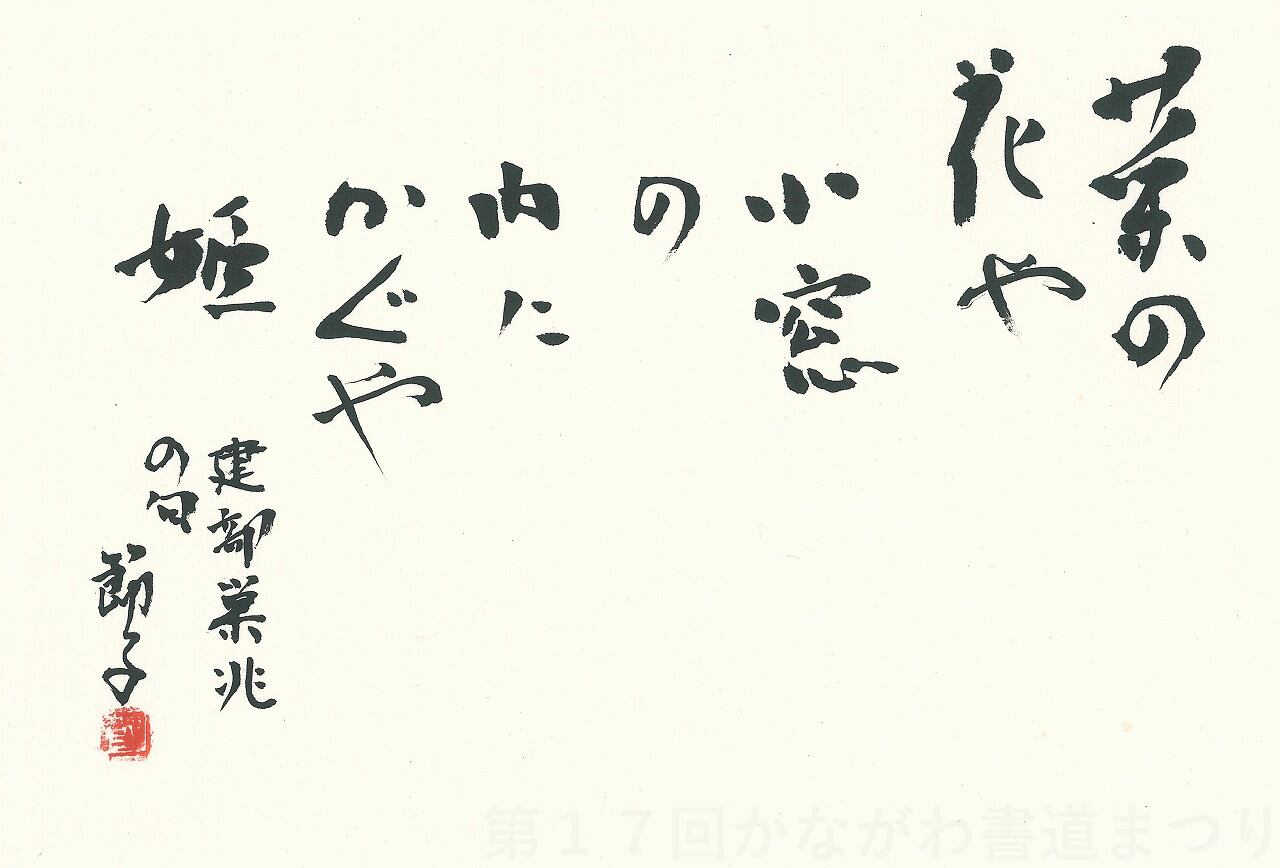 菜の
花や
小窓
の
内に
かぐや
姫
建部巣兆
の句
節子
第１７回かながわ書道まつり